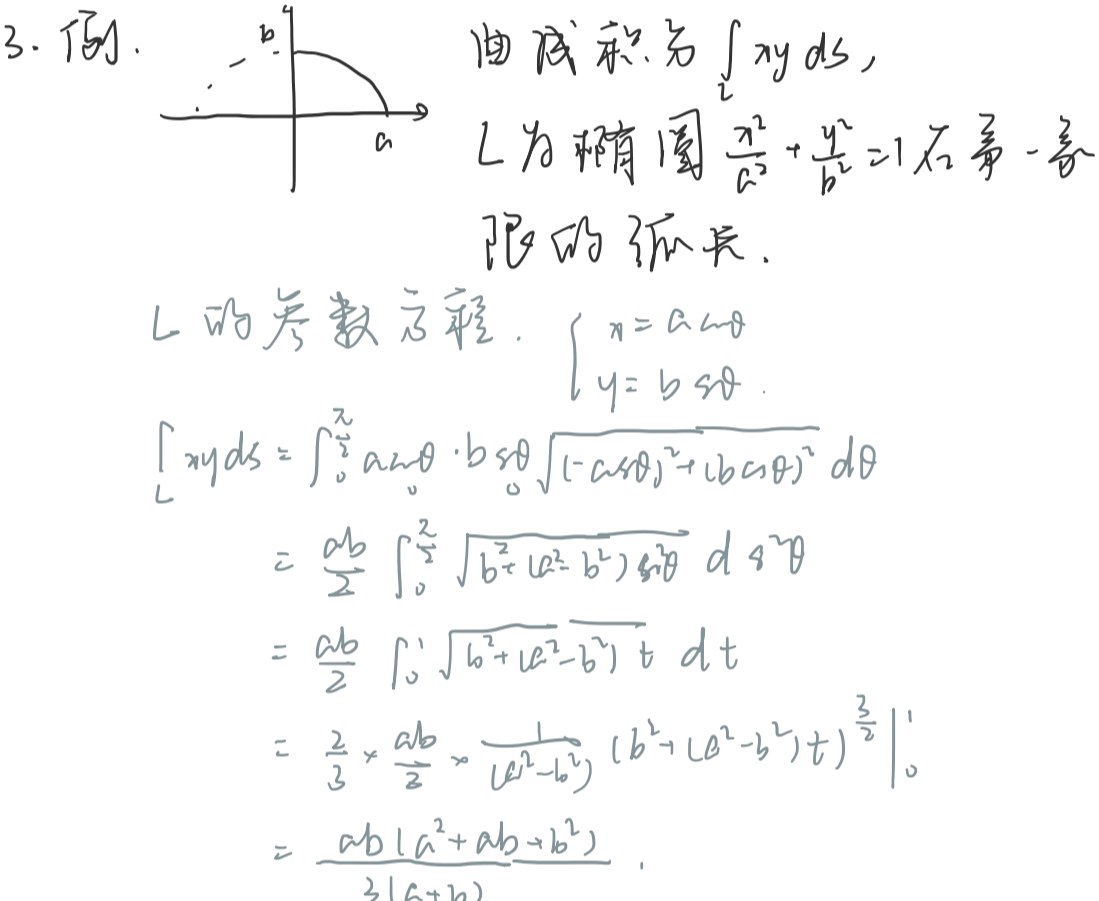 3. 例.
b
a
曲线积分 ∫_L xy ds,
L为椭圆 x²/a² + y²/b² = 1 在第一象
限的弧长.
L的参数方程. { x = a cosθ
y = b sinθ.
∫_L xy ds = ∫_0^{π/2} a cosθ · b sinθ √((-a sinθ)² + (b cosθ)²) dθ
= ab/2 ∫_0^{π/2} √(b² + (a² - b²) sin²θ) d sin²θ
= ab/2 ∫_0^1 √(b² + (a² - b²) t) dt
= 2/3 × ab/2 × 1/(a² - b²) (b² + (a² - b²) t)^{3/2} |_0^1
= ab(a² + ab + b²) / 3(a + b) .